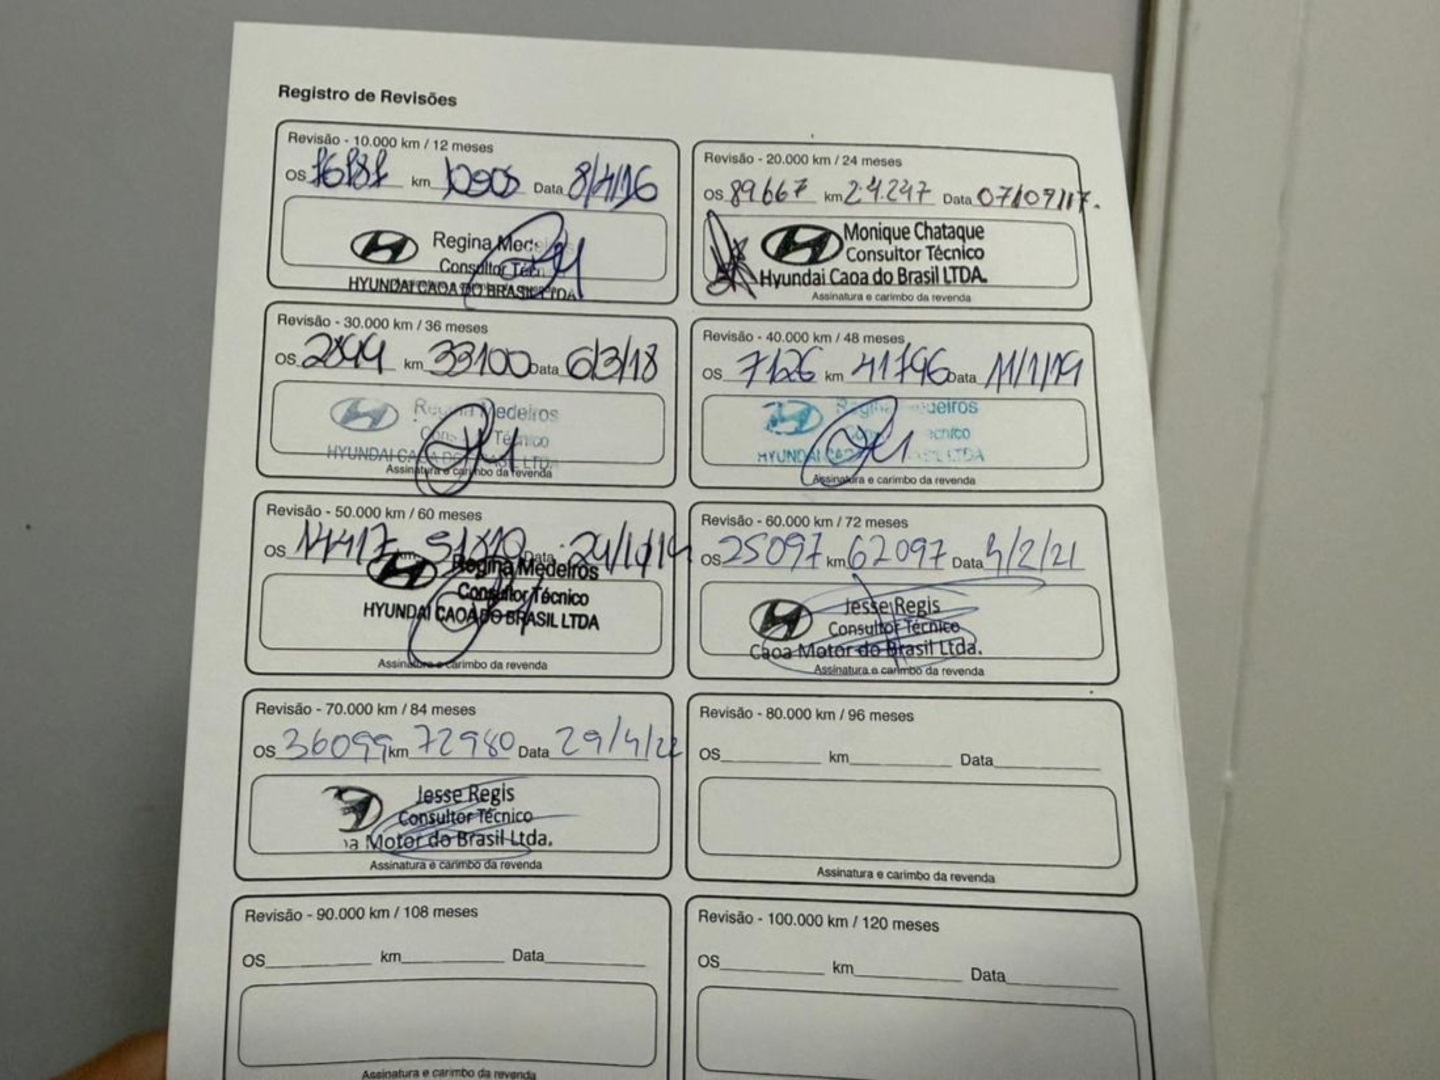 Registro de Revisões
Revisão - 10.000 km / 12 meses
OS km Data 8/4/16
Regina Medeiros
Consultor Técn
HYUNDAI CAOA DO BRASIL LTDA
Revisão - 20.000 km / 24 meses
OS 89667 km 24.247 Data 07/07/17.
Monique Chataque
Consultor Técnico
Hyundai Caoa do Brasil LTDA.
Assinatura e carimbo da revenda
Revisão - 30.000 km / 36 meses
OS 2899 km 33100 Data 6/3/18
Regina Medeiros
Consultor Técnico
HYUNDAI CAOA DO BRASIL LTDA
Assinatura e carimbo da revenda
Revisão - 40.000 km / 48 meses
OS 7126 km 41796 Data 11/1/19
Regina Medeiros
Técnico
HYUNDAI CAOA DO BRASIL LTDA
Assinatura e carimbo da revenda
Revisão - 50.000 km / 60 meses
OS 14417 km Data
Regina Medeiros
Consultor Técnico
HYUNDAI CAOA DO BRASIL LTDA
Assinatura e carimbo da revenda
Revisão - 60.000 km / 72 meses
OS 25097 km 62097 Data 4/2/21
Jesse Regis
Consultor Técnico
Caoa Motor do Brasil Ltda.
Assinatura e carimbo da revenda
Revisão - 70.000 km / 84 meses
OS 36099 km 72980 Data 29/4/22
Jesse Regis
Consultor Técnico
a Motor do Brasil Ltda.
Assinatura e carimbo da revenda
Revisão - 80.000 km / 96 meses
OS km Data
Assinatura e carimbo da revenda
Revisão - 90.000 km / 108 meses
OS km Data
Assinatura e carimbo da revenda
Revisão - 100.000 km / 120 meses
OS km Data